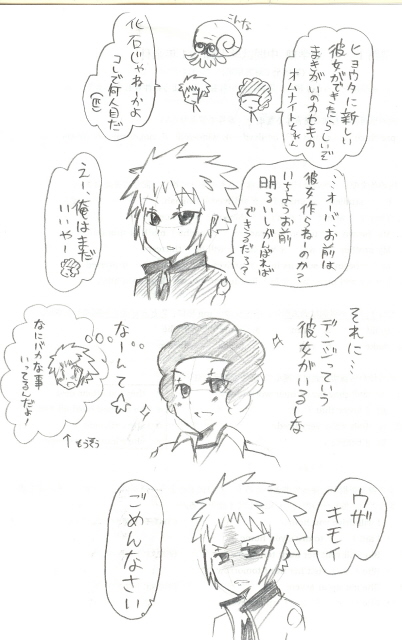 ヒョウタに新しい
彼女ができたらしいぞ
まきがいのカセキの
オムナイトちゃん
こんな
化石じゃねぇかよ
コレで何人目だ
…オーバ お前は
彼女作らねーのか?
いちようお前
明るいしがんばれば
できるだろ?
えー、俺はまだ
いいやー
それに…
デンジっていう
彼女がいるしな
なーんて☆
なにバカな事
いってるんだよ!
↑もうそう
ウザ
キモイ
ごめんなさい。